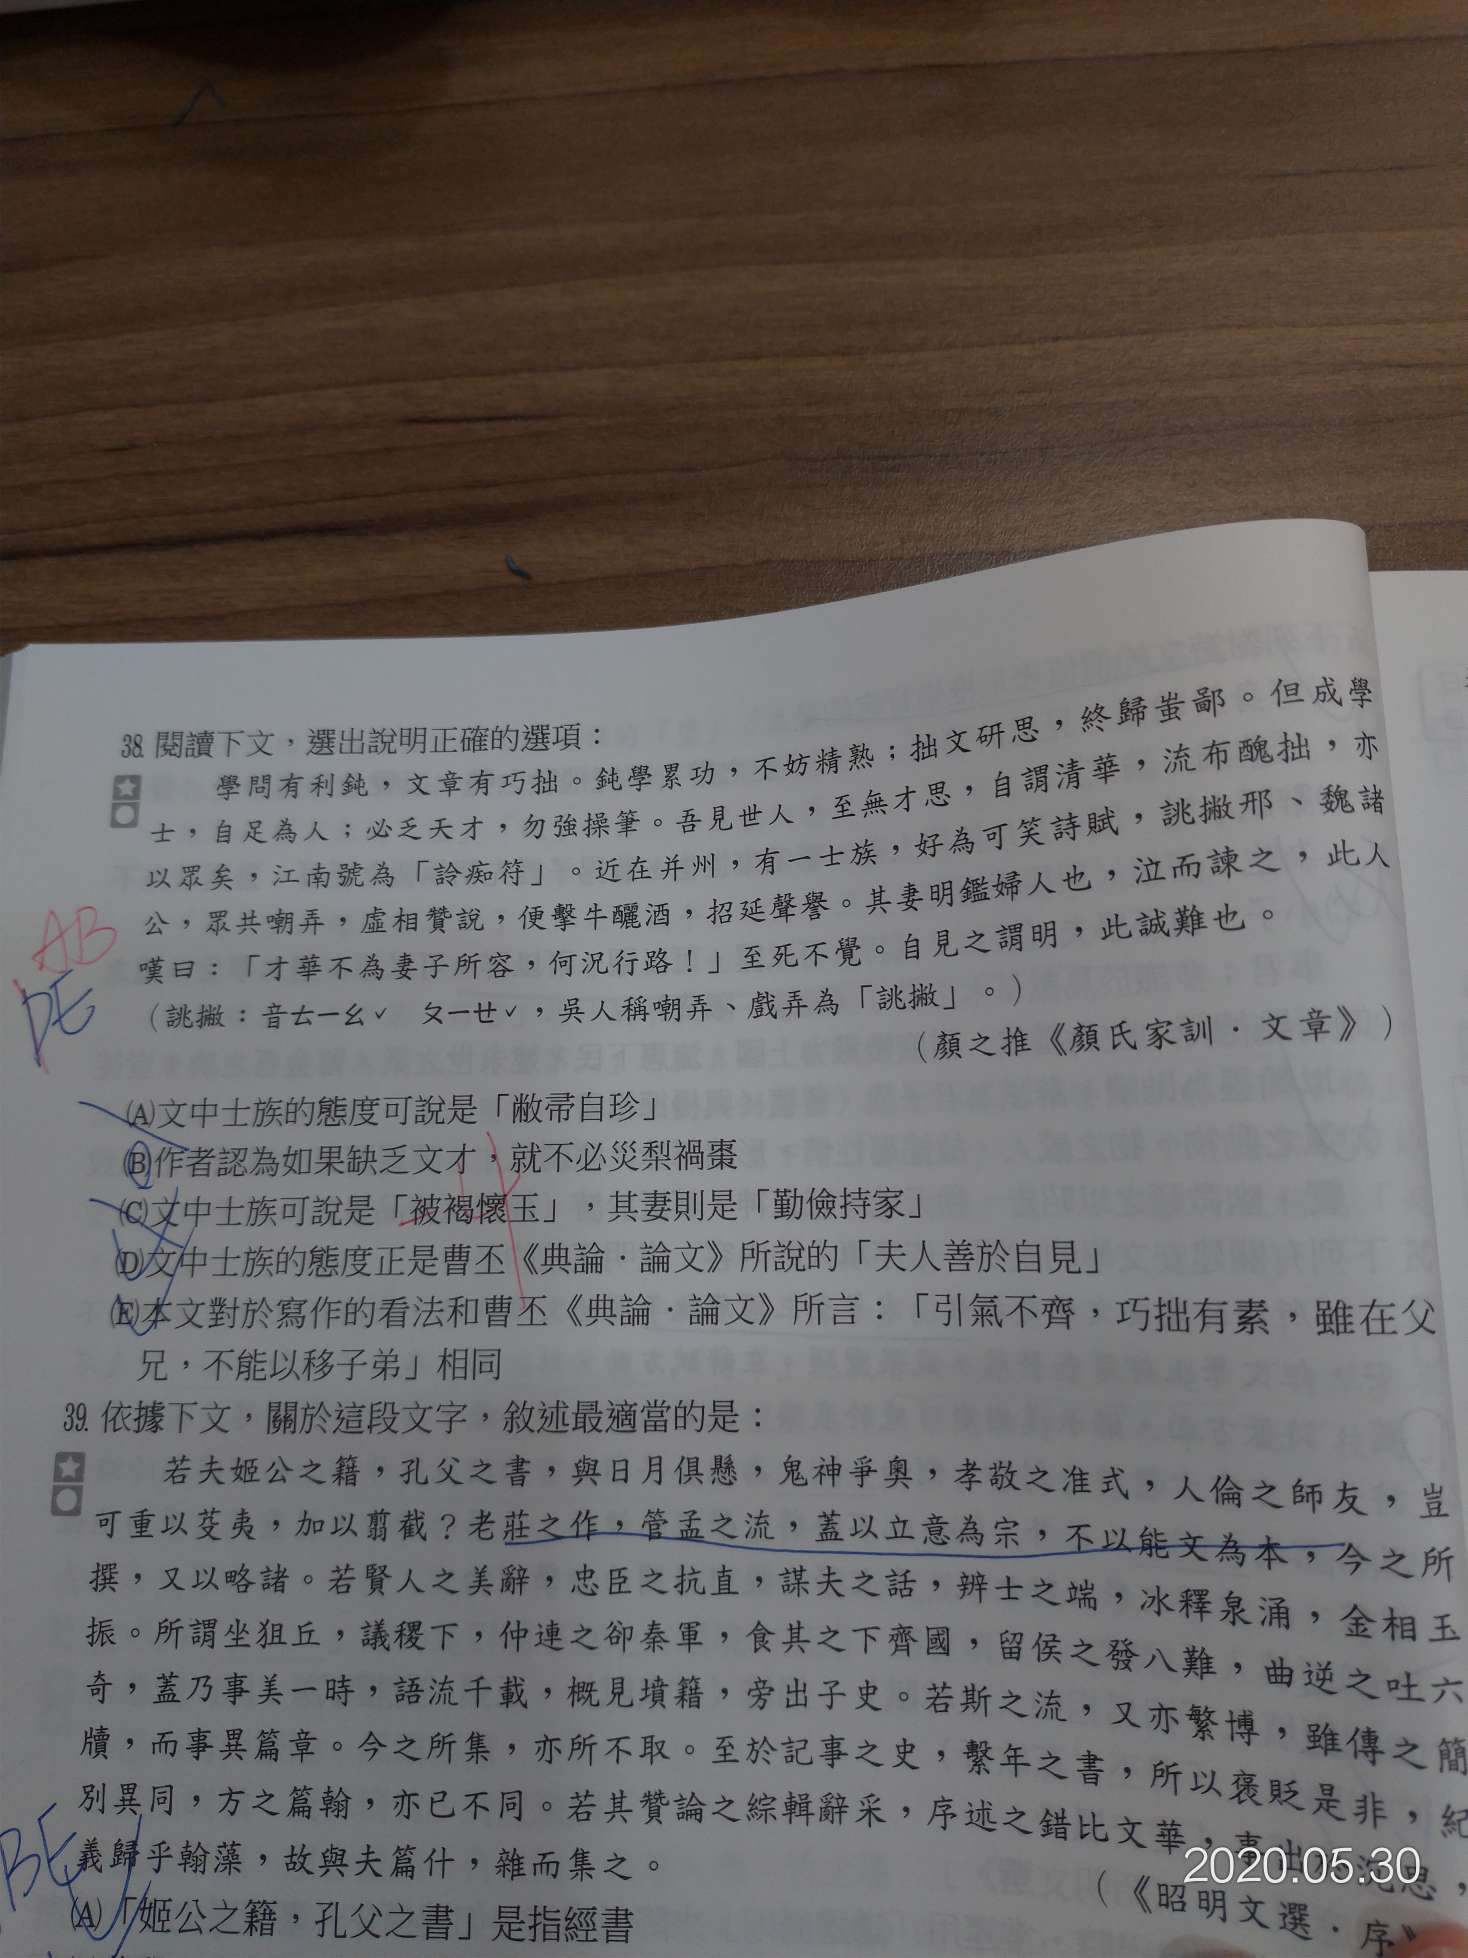 38. 閱讀下文，選出說明正確的選項：
學問有利鈍，文章有巧拙。鈍學累功，不妨精熟；拙文研思，終歸蚩鄙。但成學
士，自足為人；必乏天才，勿強操筆。吾見世人，至無才思，自謂清華，流布醜拙，亦
以眾矣，江南號為「詅痴符」。近在并州，有一士族，好為可笑詩賦，誂撇邢、魏諸
公，眾共嘲弄，虛相贊說，便擊牛釃酒，招延聲譽。其妻明鑑婦人也，泣而諫之，此人
嘆曰：「才華不為妻子所容，何況行路！」至死不覺。自見之謂明，此誠難也。
（誂撇：音ㄊㄧㄠˇ ㄆㄧㄝˇ，吳人稱嘲弄、戲弄為「誂撇」。）
（顏之推《顏氏家訓．文章》）
AB
DE
(A)文中士族的態度可說是「敝帚自珍」
(B)作者認為如果缺乏文才，就不必災梨禍棗
(C)文中士族可說是「被褐懷玉」，其妻則是「勤儉持家」
(D)文中士族的態度正是曹丕《典論．論文》所說的「夫人善於自見」
(E)本文對於寫作的看法和曹丕《典論．論文》所言：「引氣不齊，巧拙有素，雖在父
兄，不能以移子弟」相同
39. 依據下文，關於這段文字，敘述最適當的是：
若夫姬公之籍，孔父之書，與日月俱懸，鬼神爭奧，孝敬之准式，人倫之師友，豈
可重以芟夷，加以翦截？老莊之作，管孟之流，蓋以立意為宗，不以能文為本，今之所
撰，又以略諸。若賢人之美辭，忠臣之抗直，謀夫之話，辨士之端，冰釋泉涌，金相玉
振。所謂坐狙丘，議稷下，仲連之卻秦軍，食其之下齊國，留侯之發八難，曲逆之吐六
奇，蓋乃事美一時，語流千載，概見墳籍，旁出子史。若斯之流，又亦繁博，雖傳之簡
牘，而事異篇章。今之所集，亦所不取。至於記事之史，繫年之書，所以褒貶是非，紀
別異同，方之篇翰，亦已不同。若其贊論之綜輯辭采，序述之錯比文華，事出於沉思，
義歸乎翰藻，故與夫篇什，雜而集之。
（《昭明文選．序》
BE
(A)「姬公之籍，孔父之書」是指經書
2020.05.30